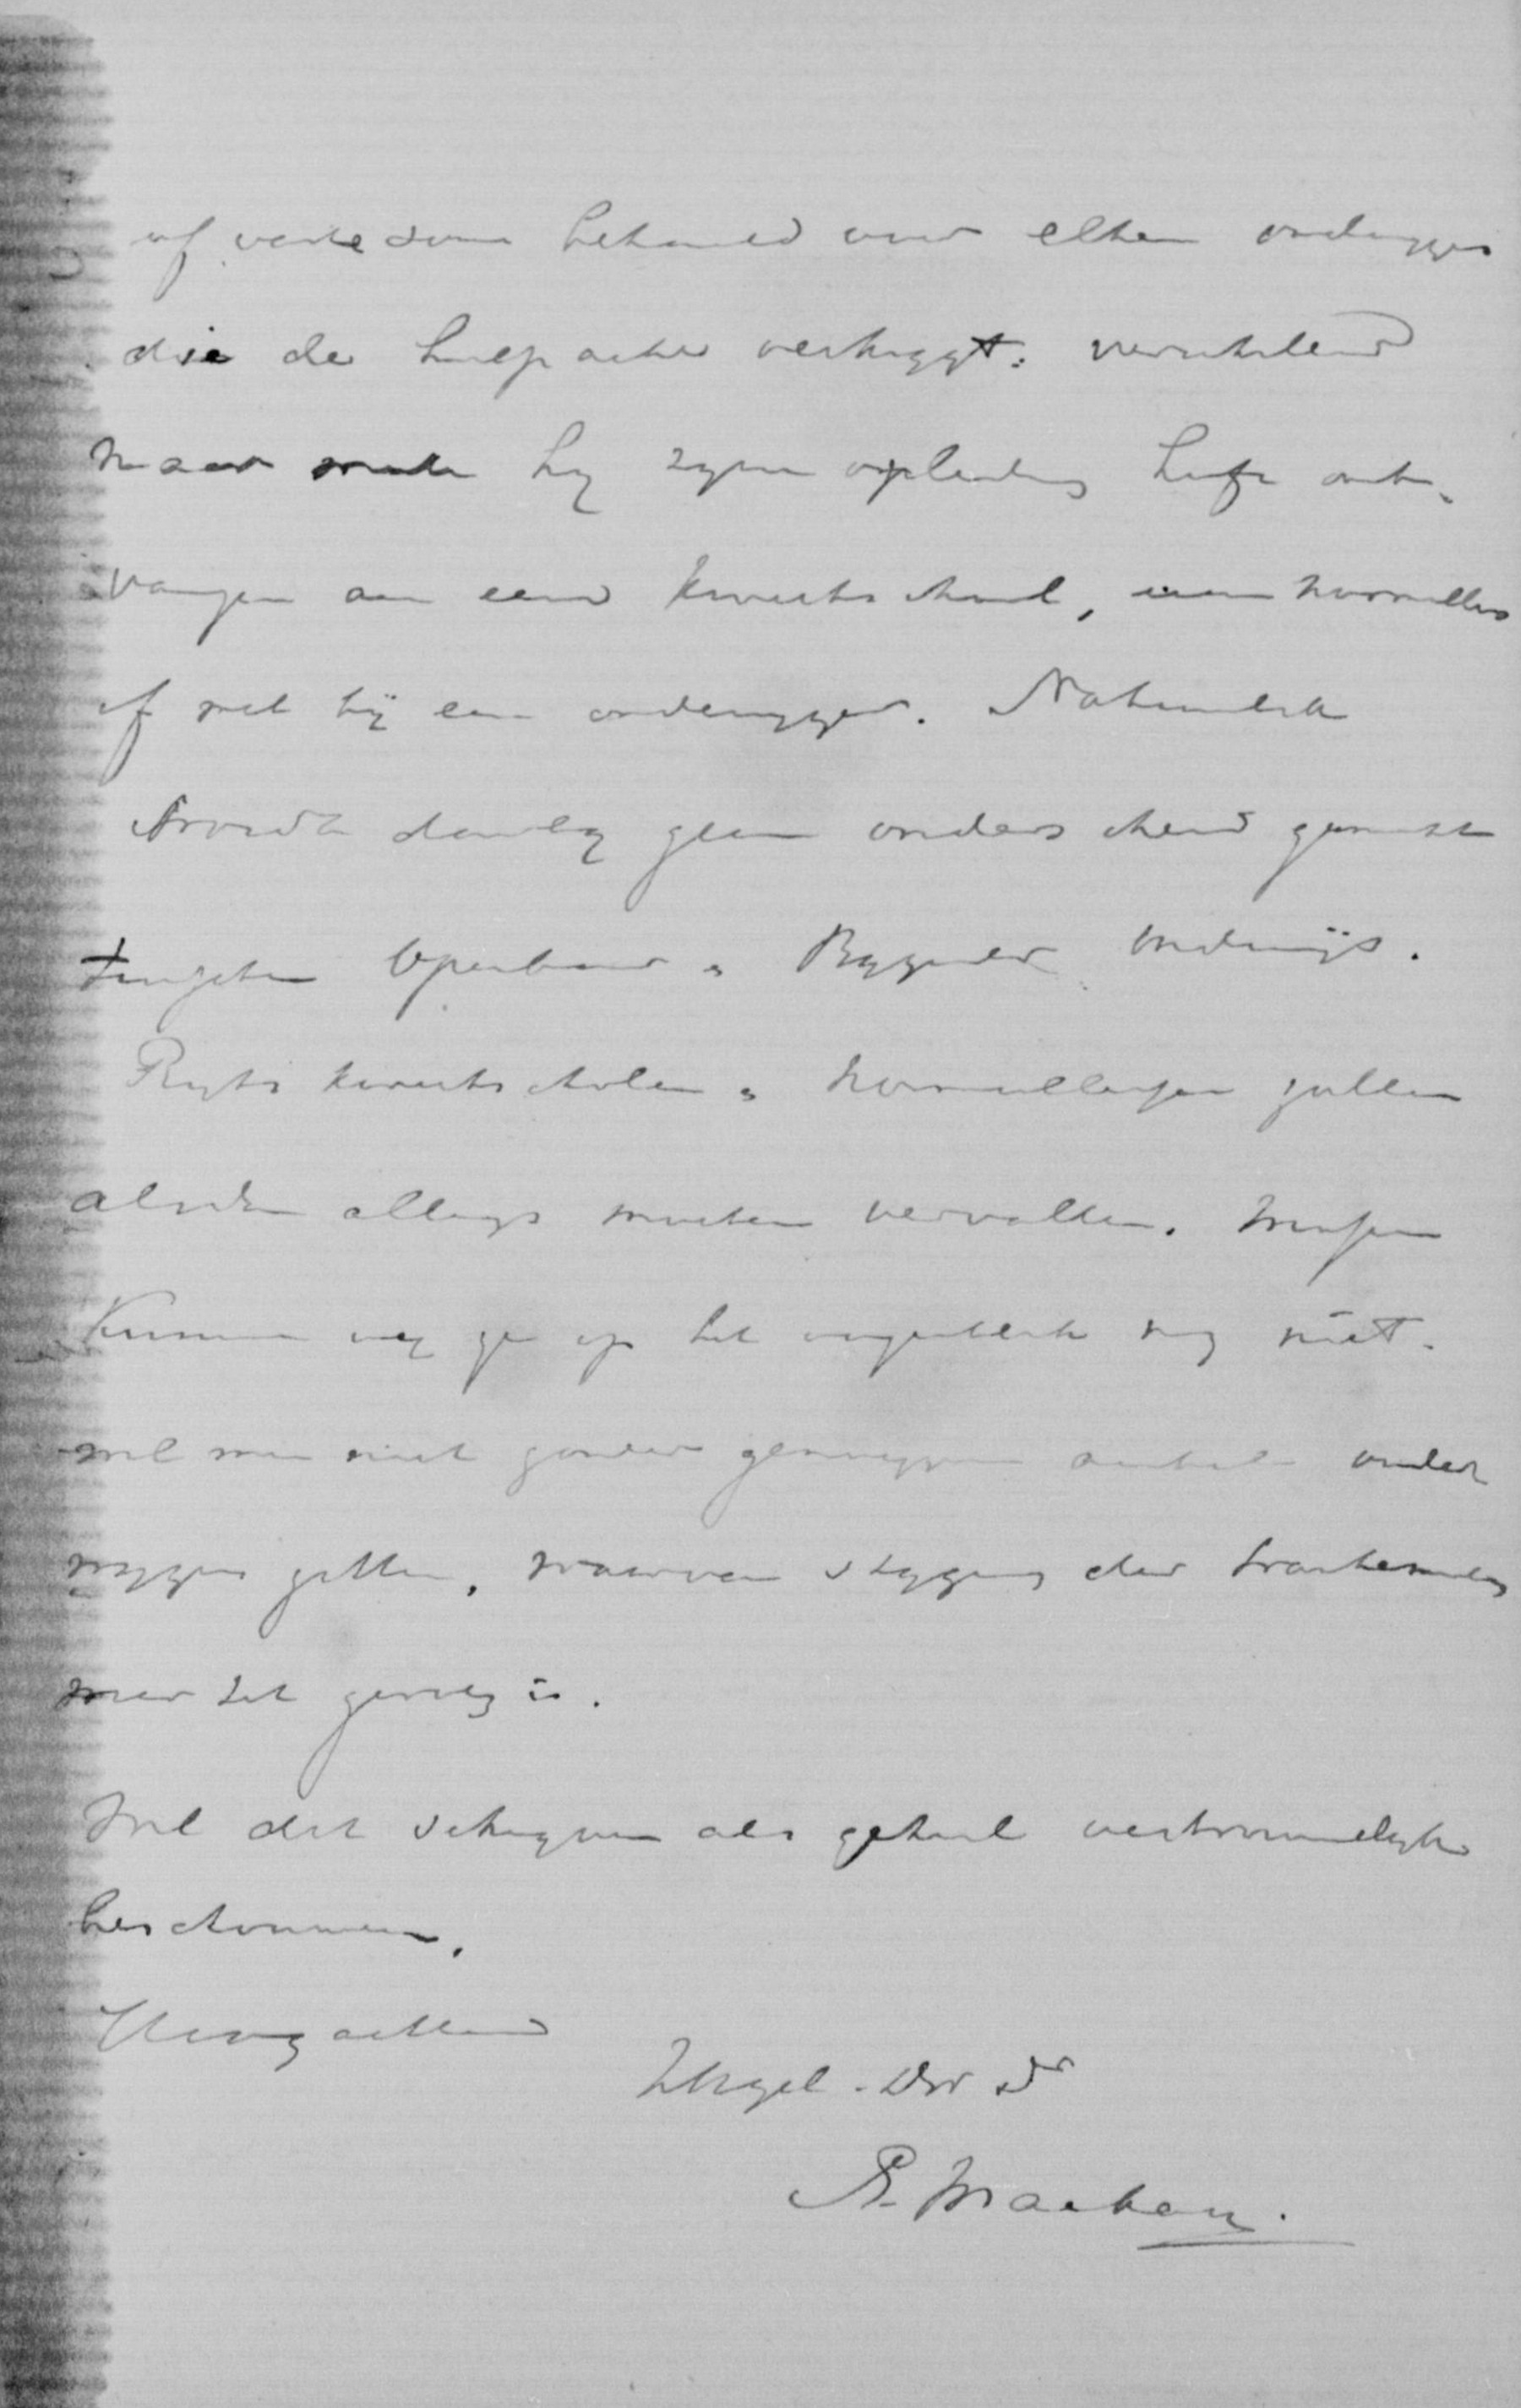 of vaste som betaald voor elken onderwyzer
die de hulpacte verkrygt: verschillend
naar mate hy zyne opleiding heeft ont-
vangen aan eene kweekschool, eene normaalles
of wel bij een onderwyzer. Natuurlyk
wordt daarby geen onderscheid gemaakt
tusschen Openbaar & Byzonder Onderwijs.
Ryks kweekscholen & normaallessen zullen
alsdan allengs moeten vervallen. Missen
kunnen wy ze op het oogenblik nog niet.
wil men niet zonder genoegzaam aantal onder
wyzers zitten, waarvan styging der tractementen
weer het gevolg is.
Wil dit schryven als geheel vertrouwelyk
beschouwen.
Hoogachtend
UHgel. Dw Dr
Æ. Mackay.